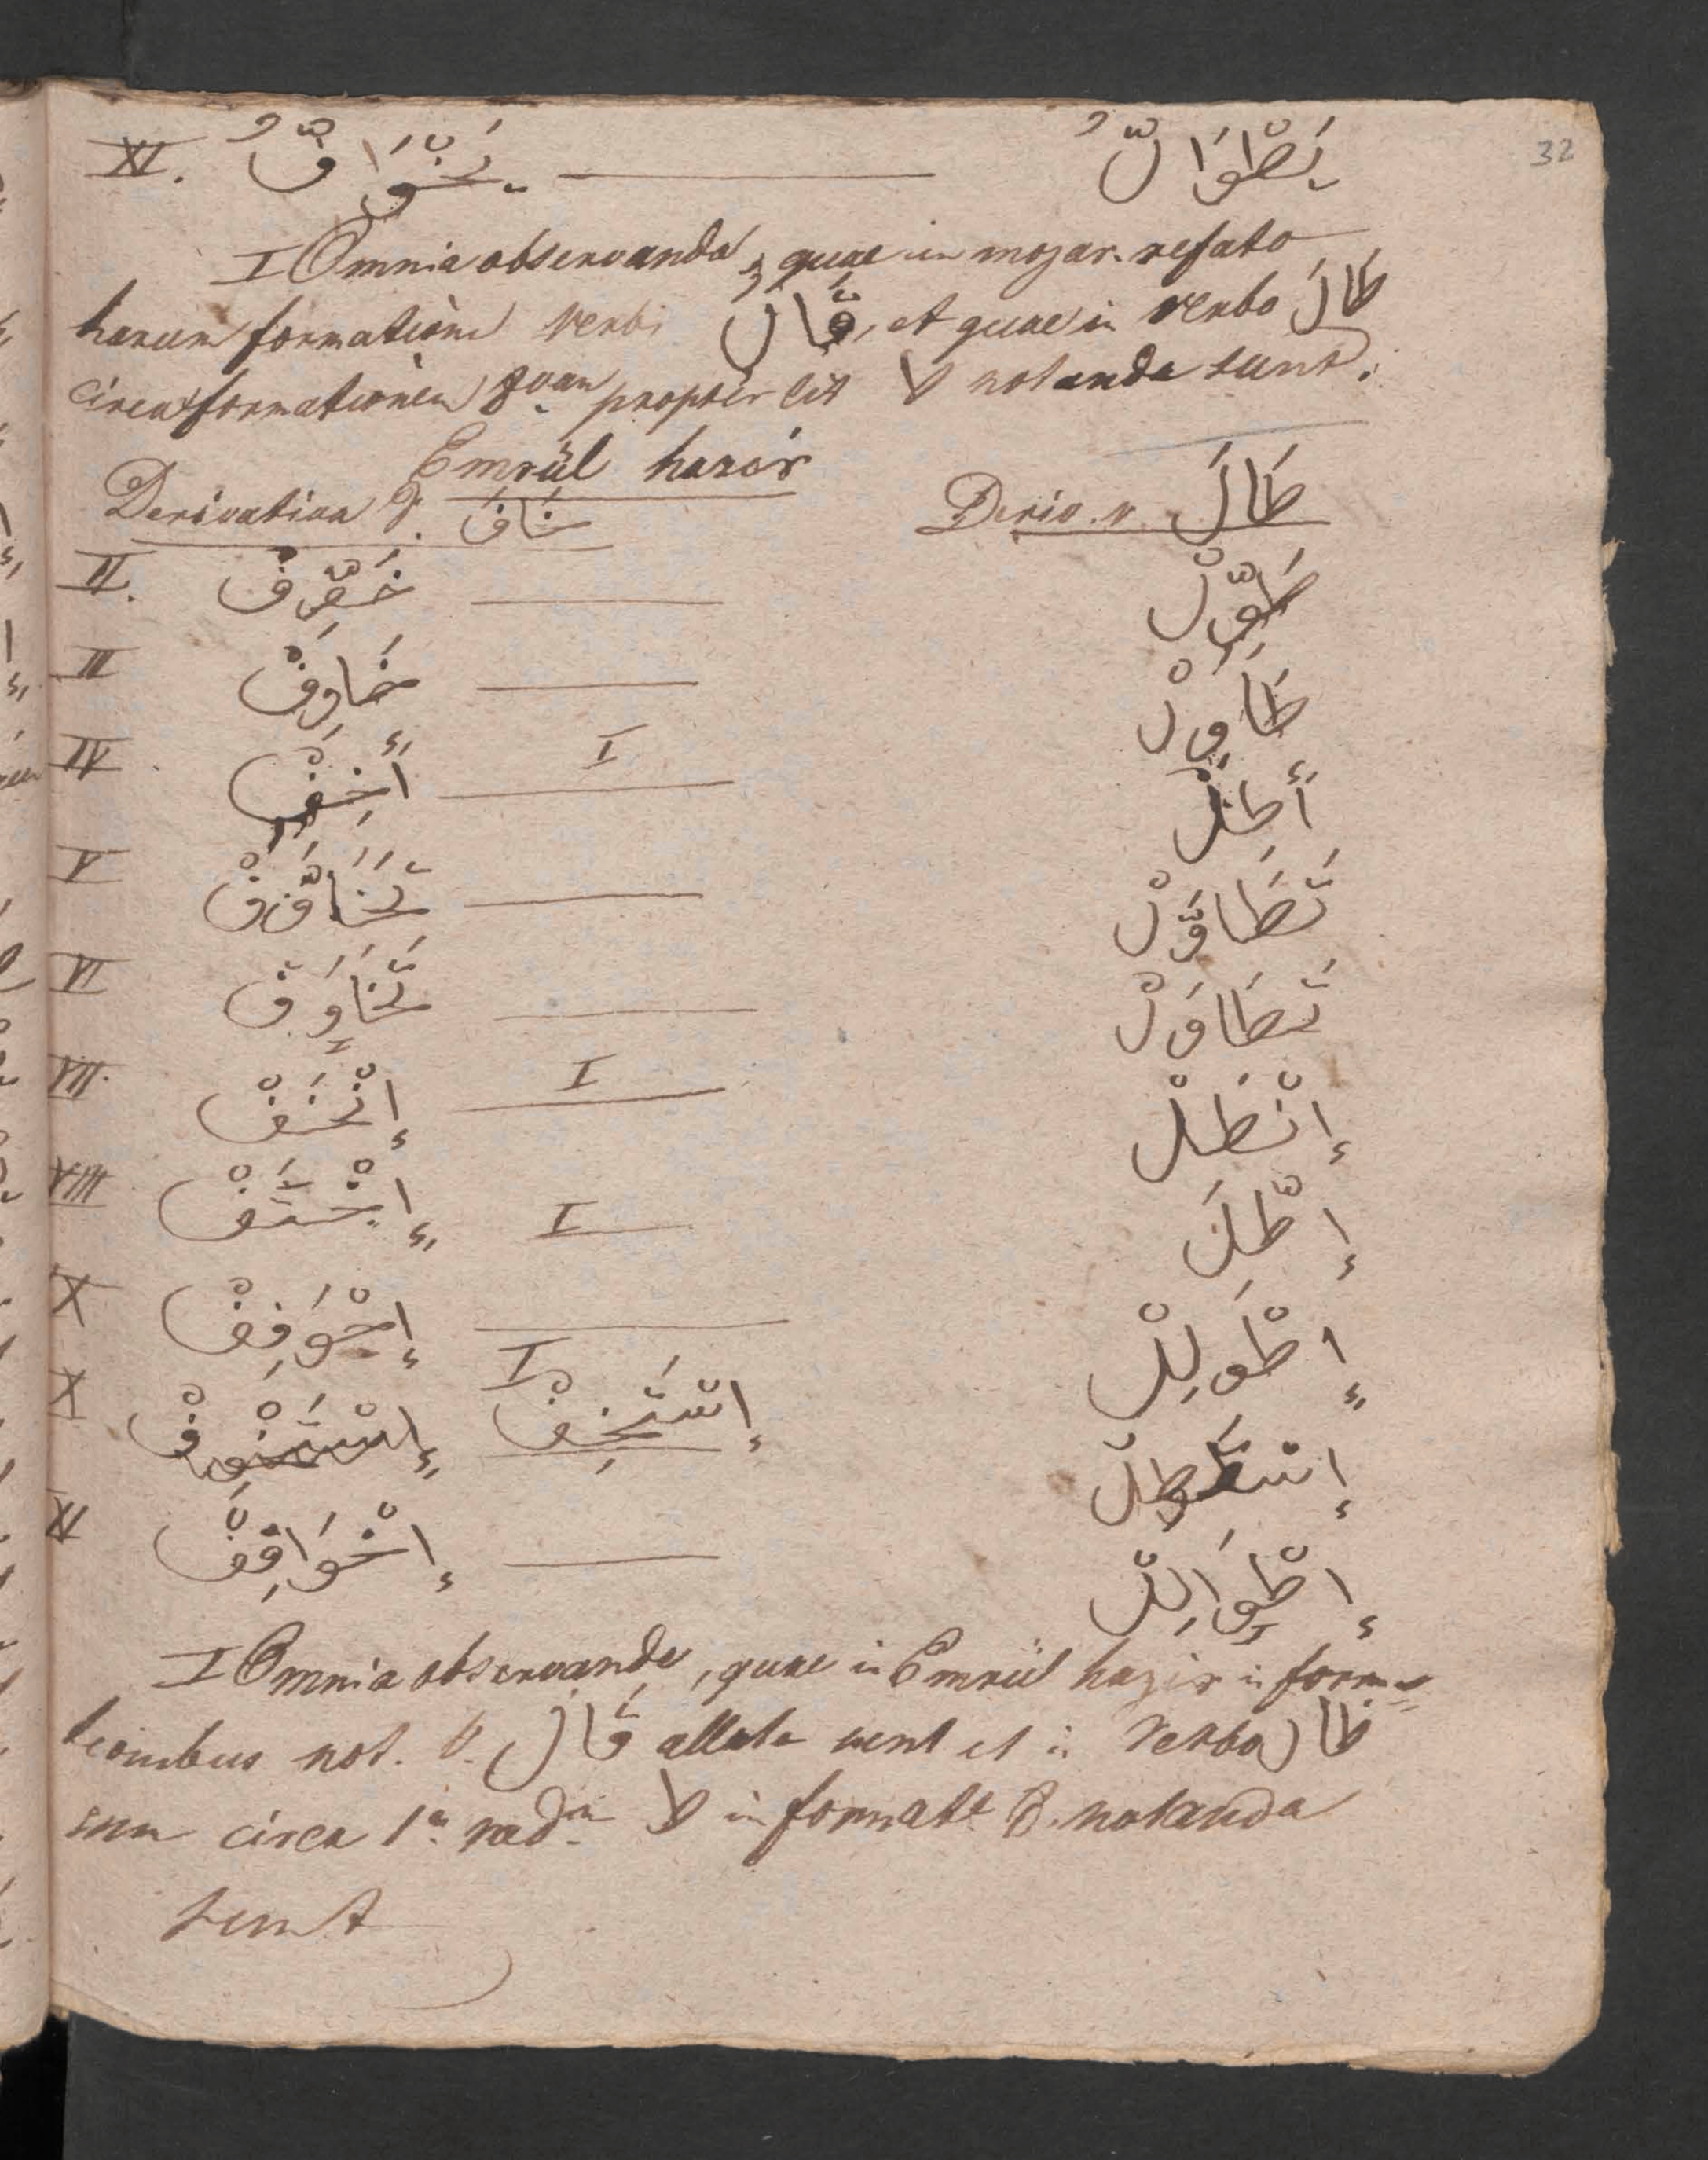 32
XI. يَخْوَافُّ — يَطْوَالُّ
I Omnia observanda, quae in mozar. refato
harum formationū verbi قَالَ, et quae in verbo طَالَ
circa formationem 8vam propter lit ط notanda sunt.
Emrül hazir
Derivativa v. خَافَ Deriv. v. طَالَ
II. خَوِّفْ — طَوِّلْ
III خَاوِفْ — طَاوِلْ
IV أَخِفْ — I أَطِلْ
V تَخَاوَّفْ — تَطَاوَّلْ
VI تَخَاوَفْ — تَطَاوَلْ
VII. إِنْخَفْ — I إِنْطَلْ
VIII إِخْتَفْ I — إِطَّلَ
X إِخْوَفِفْ — إِطْوَلِلْ
X إِسْتَخْوِفْ I إِسْتَخِفْ إِسْتَطِلْ
XI إِخْوَافِفْ — إِطْوَالِلْ
I Omnia observanda, quae in Emrül hazir in forma-
tionibus not. v. قَالَ allata sunt et in verbo طَالَ
sum circa 1ᵃ radᵐ ط in format 8. notanda
sunt